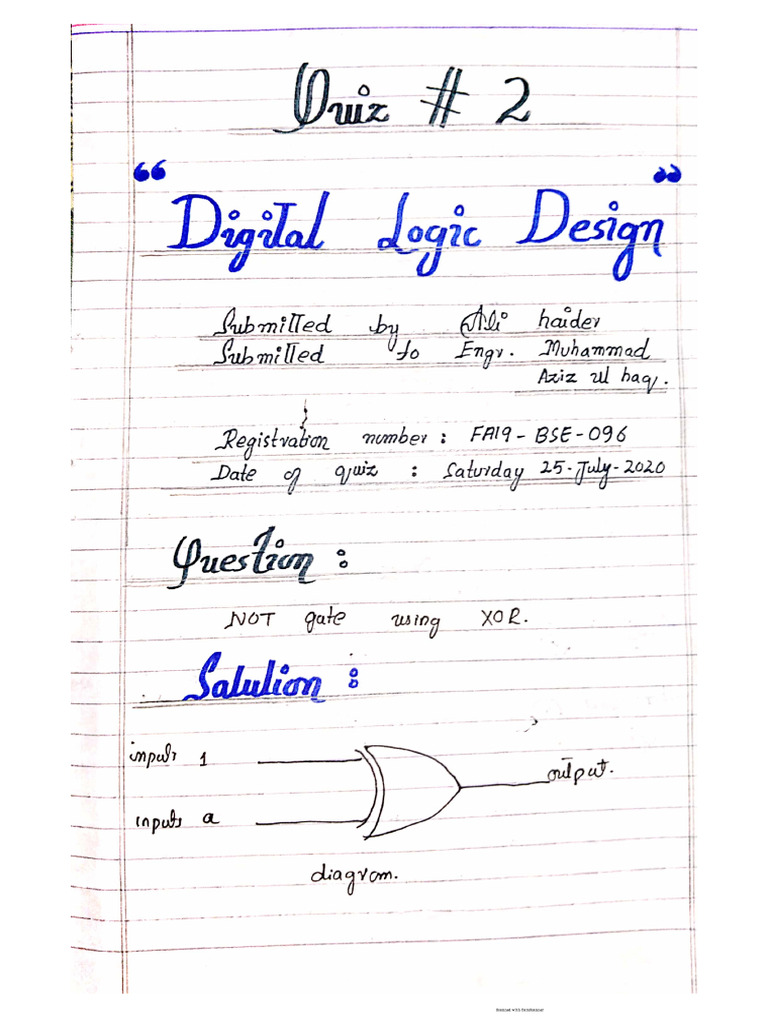 Quiz # 2
“ ”
Digital Logic Design
Submitted by Ali haider
Submitted to Engr. Muhammad
Aziz ul haq.
Registration number : FA19-BSE-096
Date of quiz : Saturday 25-July-2020
Question :
NOT gate using XOR.
Salution :
inputs 1
output.
inputs a
diagram.
Scanned with CamScanner